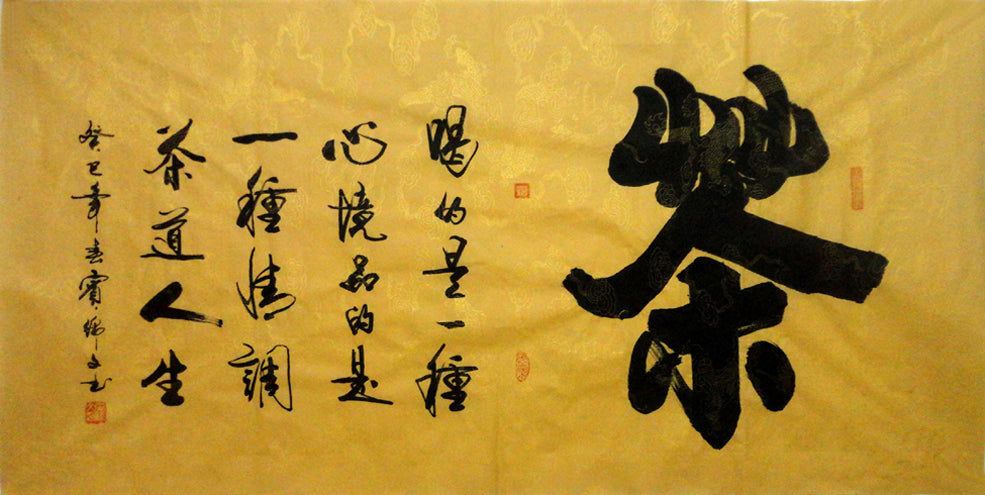 茶
喝的是一種
心境品的是
一種情調
茶道人生
癸巳年春賓鄉文书